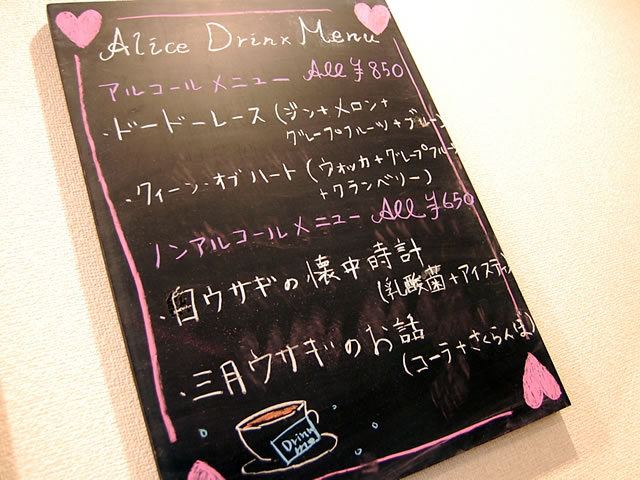 Alice Drink Menu
アルコールメニュー All ¥850
・ドードーレース(ジン+メロン+
グレープフルーツ+ブルー
・クィーン・オブハート(ウォッカ+グレープフルーツ
+クランベリー)
ノンアルコールメニュー All ¥650
・白ウサギの懐中時計
(乳酸菌+アイスティ
・三月ウサギのお話
(コーラ+さくらんぼ)
Drink me